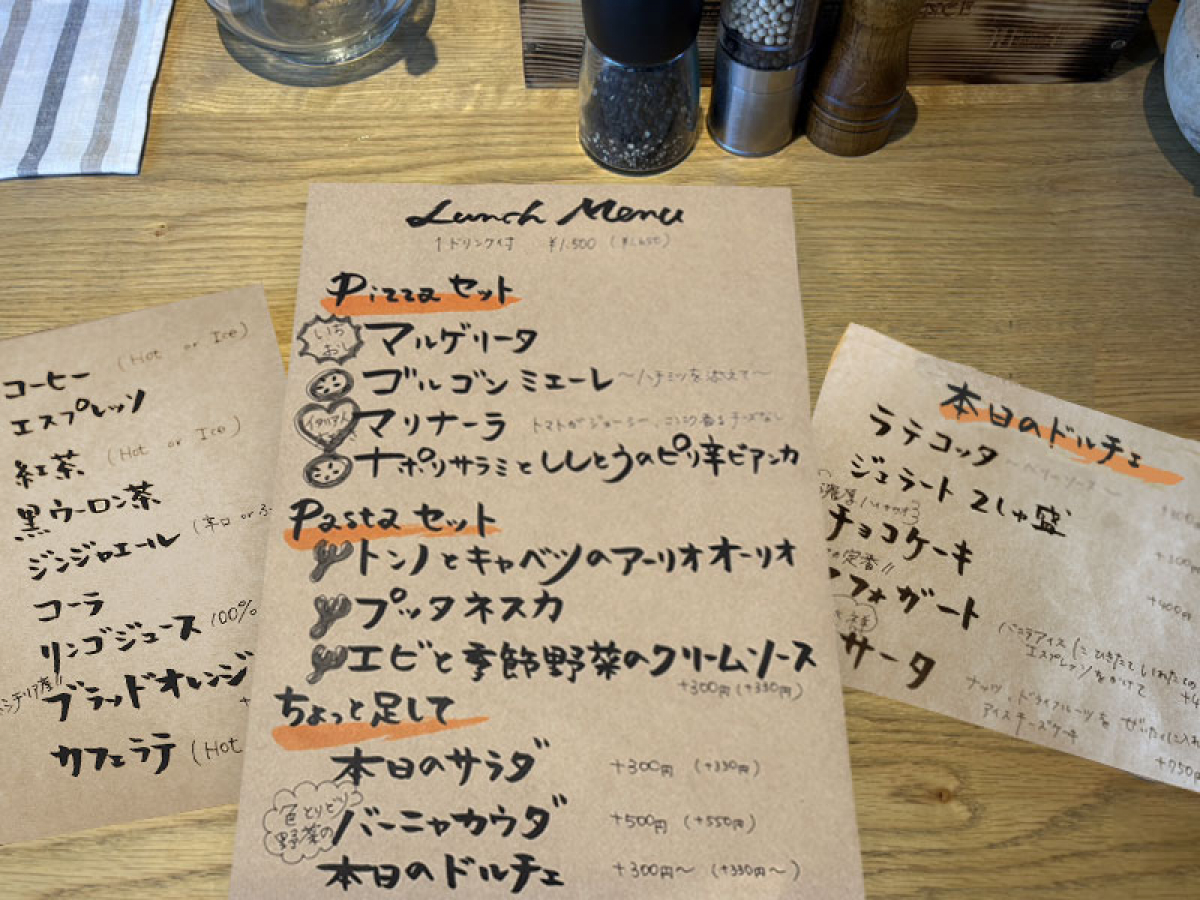 Lunch Menu
↑ドリンク付 ¥1.500 (¥1.650)
Pizza セット
いち
おし
マルゲリータ
ゴルゴンミエーレ 〜ハチミツを添えて〜
イタリア人
マリナーラ トマトがジューシー、 チーズなし
ナポリサラミとししとうのピリ辛ビアンカ
Pasta セット
トンノとキャベツのアーリオオーリオ
プッタネスカ
エビと季節野菜のクリームソース
+300円 (+330円)
ちょっと足して
本日のサラダ +300円 (+330円)
色とりどり
野菜の
バーニャカウダ +500円 (+550円)
本日のドルチェ +300円〜 (+330円〜)
コーヒー (Hot or Ice)
エスプレッソ
紅茶 (Hot or Ice)
黒ウーロン茶
ジンジャエール (辛口 or
コーラ
リンゴジュース 100%
ブラッドオレンジ
カフェラテ (Hot
本日のドルチェ
ラテコッタ 〜ベリーソース〜
ジェラート 2しゅ盛
+300円
チョコケーキ
+400円
の定番!!
フォガート
バニラアイスに ひきたて いれたての
エスプレッソをかけて
サータ
ナッツ、ドライフルーツを ぜいたくに入れ
アイスチーズケーキ
+750円